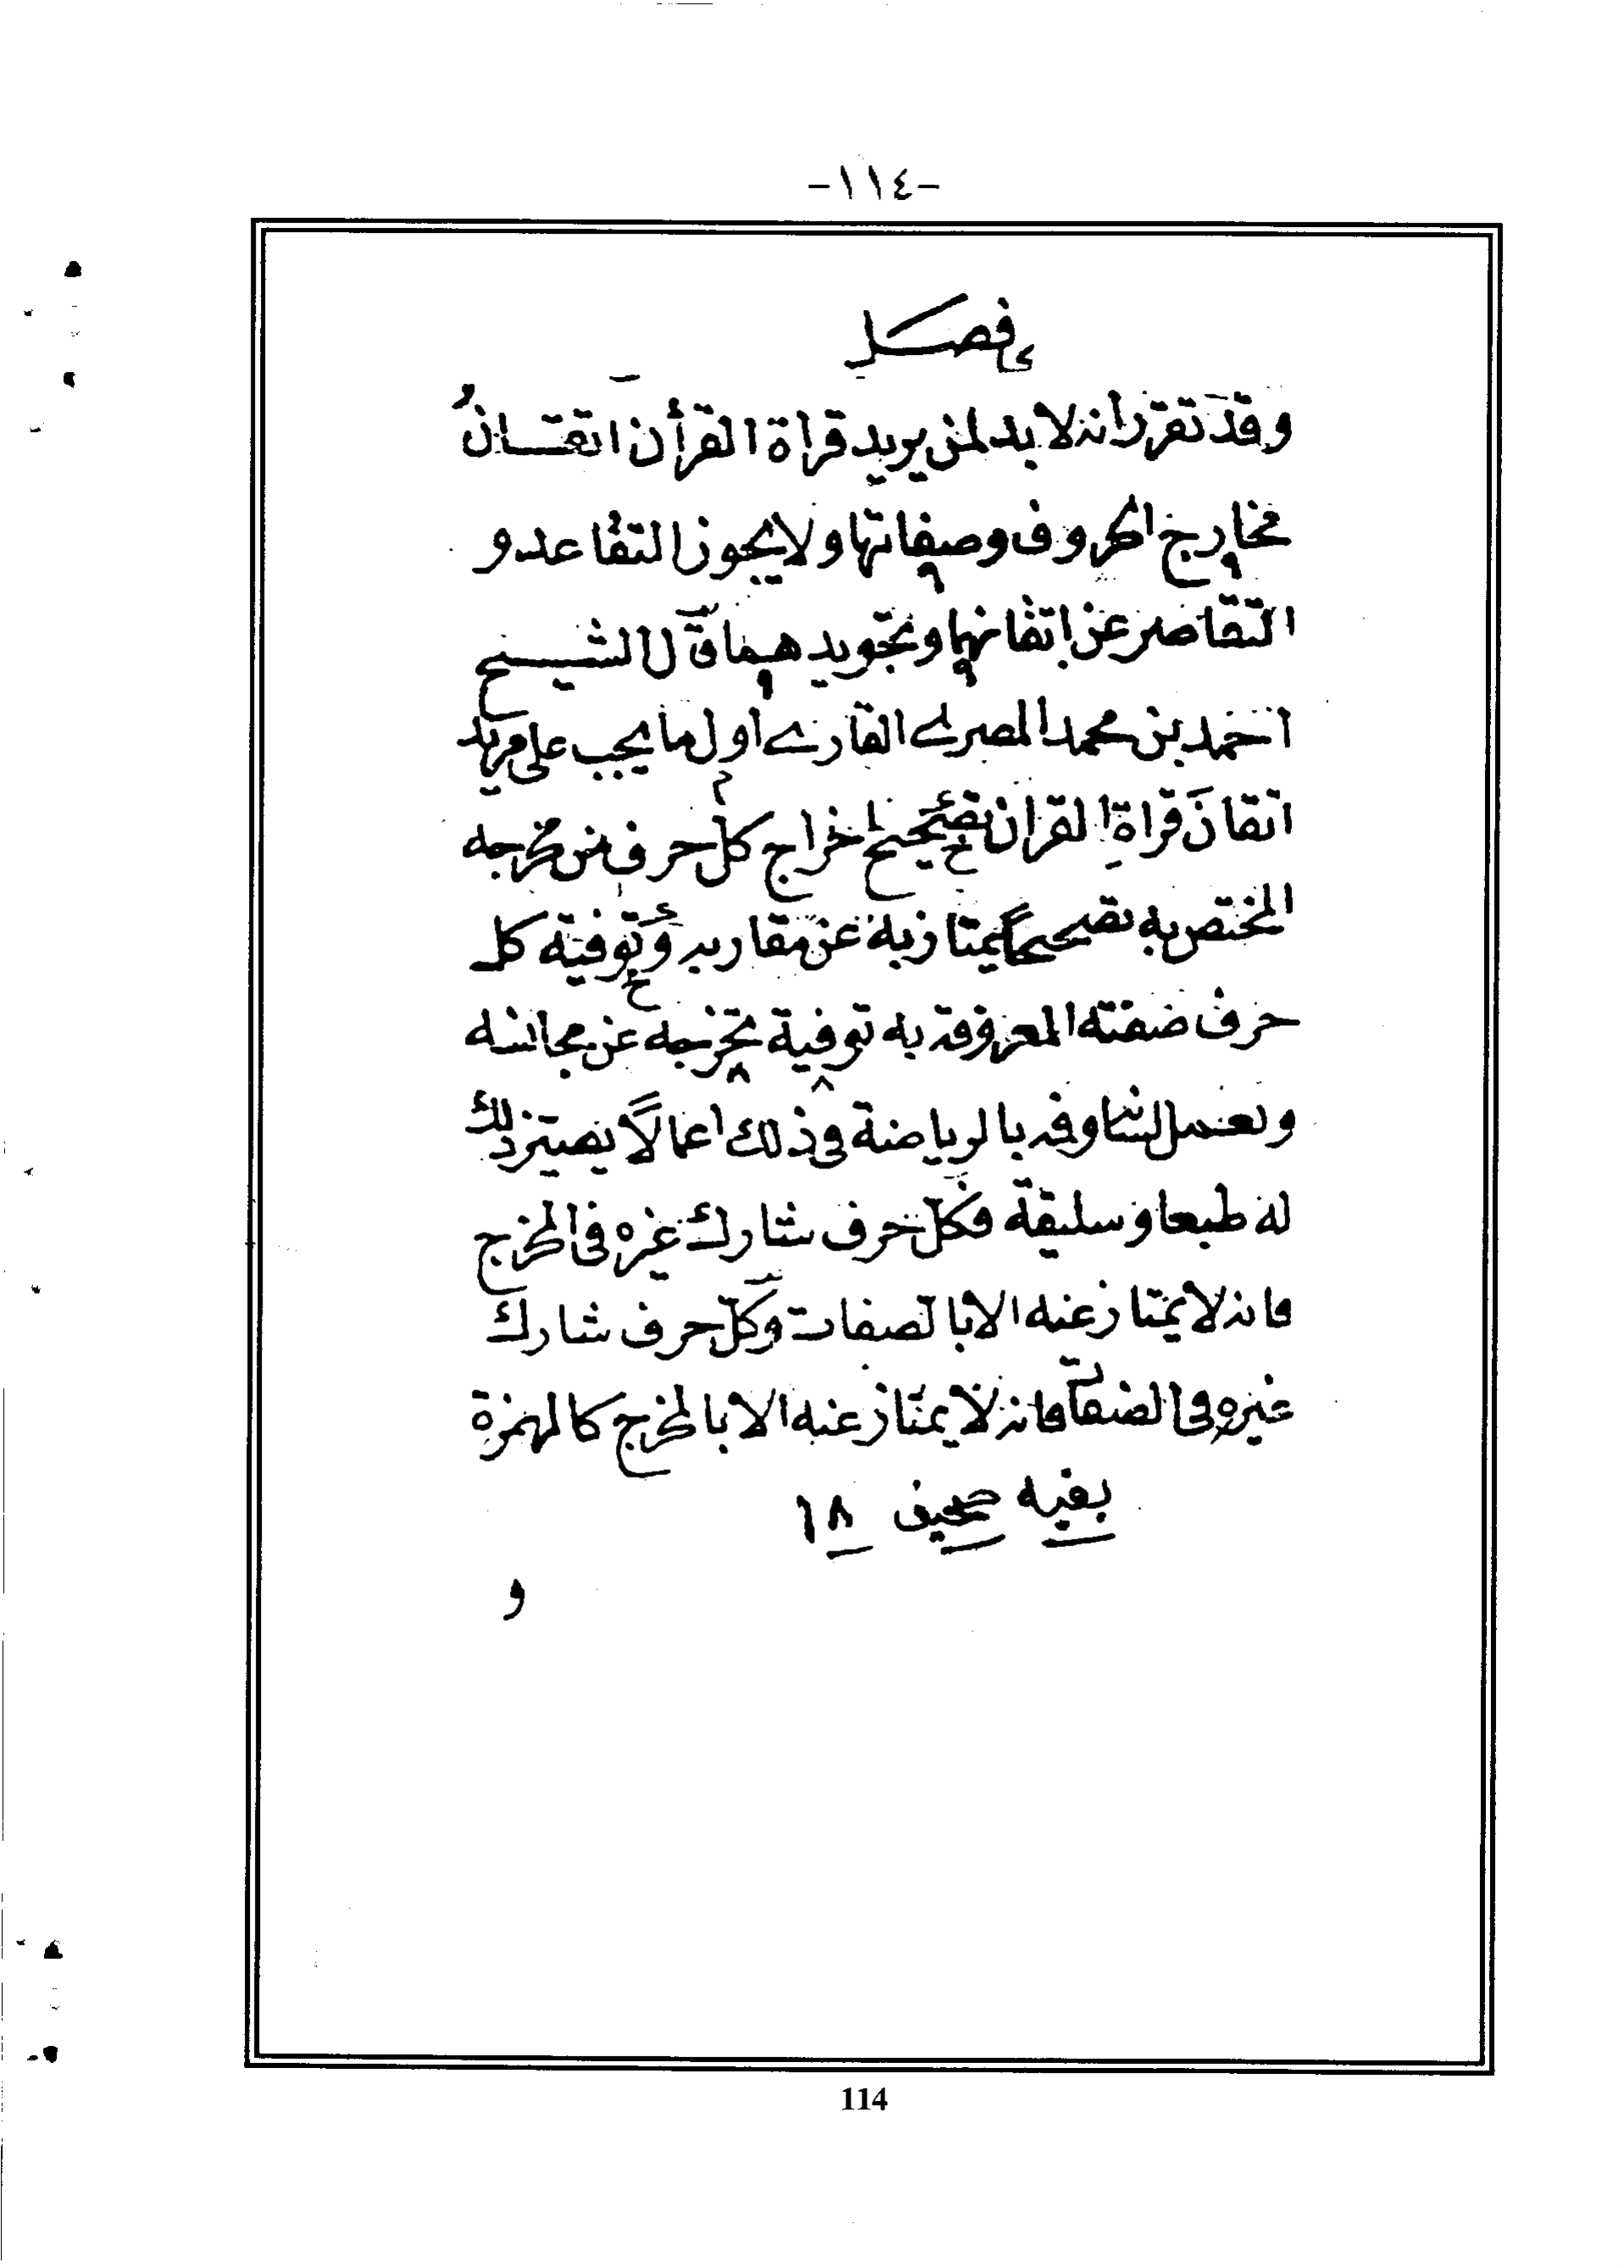 -١١٤-
فصل
وقد تقرر انه لا بد لمن يريد قراة القرأن اتقان
مخارج الحروف وصفاتها ولا يجوز التقاعد و
التقاصر عن اتقانهما وتجويدهما قال الشيخ
احمد بن محمد المصرى القارى اول ما يجب على مريد
اتقان قراة القران تصحيح اخراج كل حرف من مخرجه
المختص به تصحيحاً يمتاز به عن مقاربه وتوفية كل
حرف صفته المعروفة به توفية تخرجه عن مجانسه
و لسانه وفمه بالرياضة فى ذلك اعمالاً يصير ذلك
له طبعا و سليقة فكل حرف شارك غيره فى المخرج
فانه لا يمتاز عنه الا بالصفات وكل حرف شارك
غيره فى الصفات فانه لا يمتاز عنه الا بالمخرج كالهمزة
بقيه صحيفه ١٨
و
114